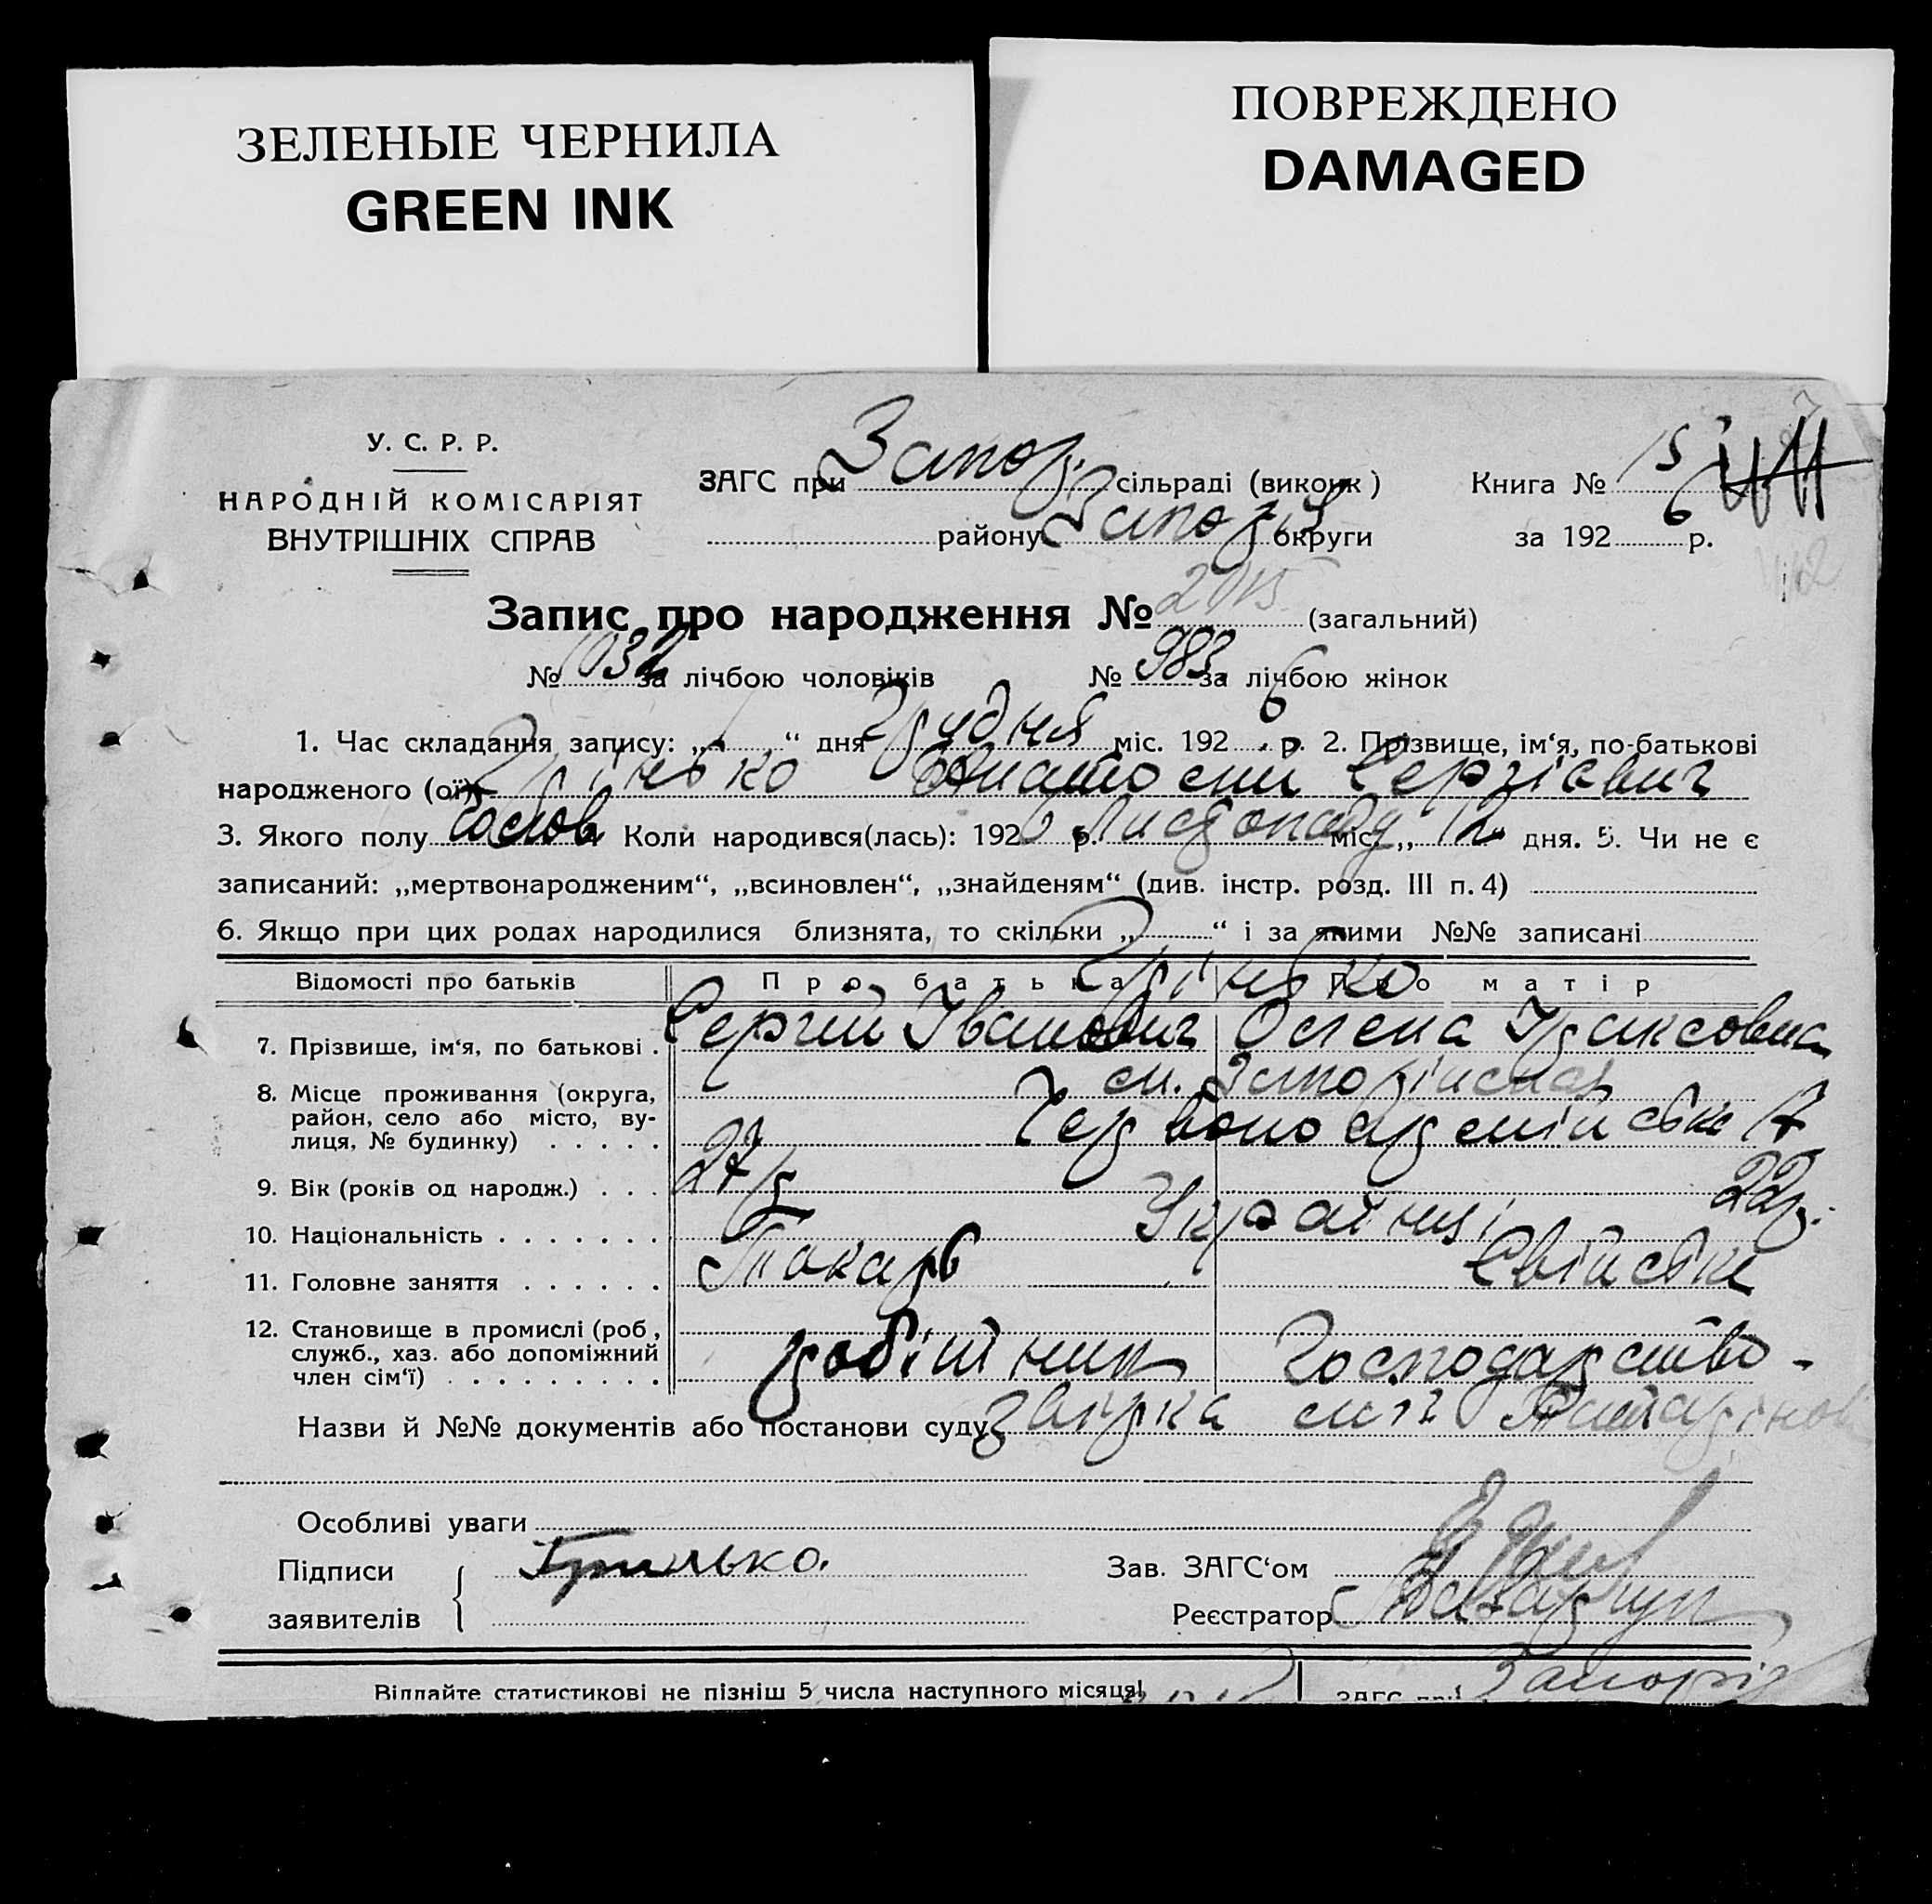 ЗЕЛЕНЫЕ ЧЕРНИЛА
GREEN INK
ПОВРЕЖДЕНО
DAMAGED
У. С. Р. Р.
НАРОДНІЙ КОМІСАРІЯТ
ВНУТРІШНІХ СПРАВ
ЗАГС при Запор. сільраді (виконк)
району Запоріз округи
Книга № 15
за 1926 р.
Запис про народження № 2015 (загальний)
№ 1032 за лічбою чоловіків № 983 за лічбою жінок
1. Час складання запису: „ “ дня Грудня міс. 1926 р. 2. Прізвище, ім‘я, по-батькові
народженого (ої) Грінько Анатолій Сергієвич
3. Якого полу чолов Коли народився(лась): 1926 р. Листопаду міс. „12“ дня. 5. Чи не є
записаний: „мертвонародженим“, „всиновлен“, „знайденям“ (див. інстр. розд. III п. 4)
6. Якщо при цих родах народилися близнята, то скільки „ “ і за якими №№ записані
Відомості про батьків Про батька Про матір
Грінько
7. Прізвище, ім‘я, по батькові . Сергій Іванович Олена
8. Місце проживання (округа,
район, село або місто, ву-
лиця, № будинку) . . . . . м. Запоріжжя
Червоноармійська 17
9. Вік (років од народж.) . . . 27 р 22 р.
10. Національність . . . . . . . Українці
11. Головне заняття . . . . . . Токарь Свійське
12. Становище в промислі (роб.,
служб., хаз. або допоміжний
член сім‘ї) . . . . . . . . . робітник Господарство -
Назви й №№ документів або постанови суду
Особливі уваги
Підписи
заявителів Гринько.
Зав. ЗАГС‘ом
Реєстратор
Віддайте статистикові не пізніш 5 числа наступного місяця!
ЗАГС при Запоріз